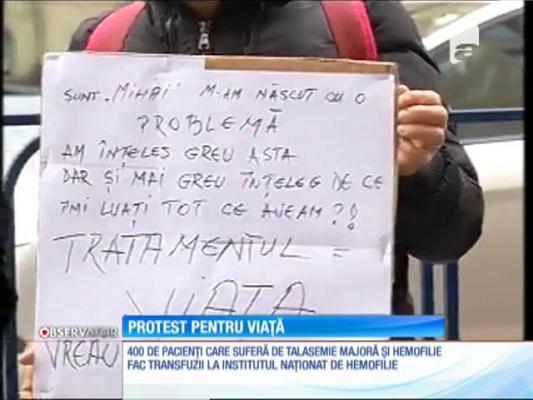 a
SUNT „MIHAI" M-AM NĂSCUT CU O
PROBLEMĂ
AM ÎNȚELES GREU ASTA
DAR ȘI MAI GREU ÎNȚELEG DE CE
ÎMI LUAȚI TOT CE AVEAM?!
TRATAMENTUL =
VIAȚA
VREAU
OBSERVATOR
PROTEST PENTRU VIAȚĂ
400 DE PACIENȚI CARE SUFERĂ DE TALASEMIE MAJORĂ ȘI HEMOFILIE
FAC TRANSFUZII LA INSTITUTUL NAȚIONAL DE HEMOFILIE